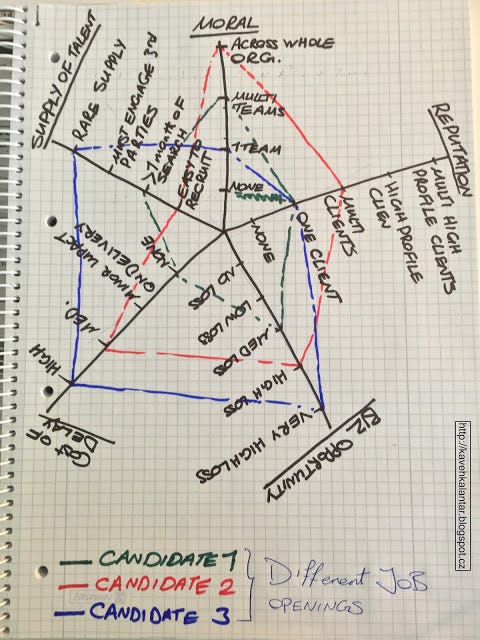 MORAL
ACROSS WHOLE
ORG.
MULTI
TEAMS
1 TEAM
NONE
REPUTATION
NONE
ONE CLIENT
MULTI
CLIENTS
HIGH PROFILE
CLIEN
MULTI HIGH
PROFILE CLIENTS
BIZ OPPORTUNITY
NO
LOSS
LOW LOSS
MED LOSS
HIGH LOSS
VERY HIGH LOSS
COST OF
DELAY
NONE
MINOR IMPACT
ON DELIVERY
MED.
HIGH
SUPPLY OF TALENT
EASY TO
RECRUIT
>1 month OF
SEARCH
MUST ENGAGE 3rd
PARTIES
RARE SUPPLY
CANDIDATE 1
CANDIDATE 2
CANDIDATE 3
Different JOB
OPENINGS
http://kavehkalantar.blogspot.cz